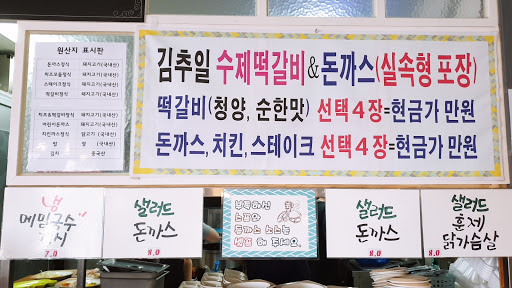 원산지 표시판
돈까스정식 돼지고기(국내산)
치즈모듬정식 돼지고기(국내산)
스테이크정식 돼지고기(국내산)
떡갈비정식 돼지고기(국내산)
치즈돈떡갈비정식 돼지고기(국내산)
어린이돈까스 돼지고기(국내산)
치킨까스정식 닭고기(국내산)
쌀 쌀 (국내산)
김치 중국산
김추일 수제떡갈비&돈까스(실속형 포장)
떡갈비(청양, 순한맛) 선택4장=현금가 만원
돈까스, 치킨, 스테이크 선택4장=현금가 만원
냉
메밀국수
정시
7.0
샐러드
돈까스
8.0
부족하신
스프와
돈까스 소스는
셀프 해 주세요.
샐러드
돈까스
8.0
샐러드
훈제
닭가슴살
8.0